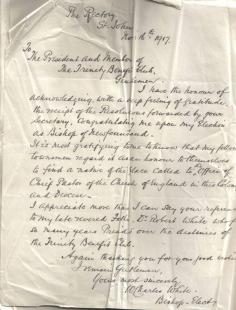 The Rectory
St. John's
Nov. 16th 1917
To
The President and Members of
The Trinity Benefit Club,
Gentlemen:
I have the honour of
acknowledging with a deep feeling of gratitude
the receipt of the Resolution forwarded by your
Secretary, Congratulating me upon my Election
as Bishop of Newfoundland.
It is most gratifying to me to know that my fellow
townsmen regard it as an honour to themselves
to find a native of the place called to Office of
Chief Pastor of the Church of England in this Colony
and Diocese.
I appreciate more than I can say your reference
to my late revered Father Robert White who for
so many years presided over the destinies of
the Trinity Benefit Club.
Again thanking you for your good wishes
I remain Gentlemen,
Yours most sincerely
W Charles White.
Bishop-Elect